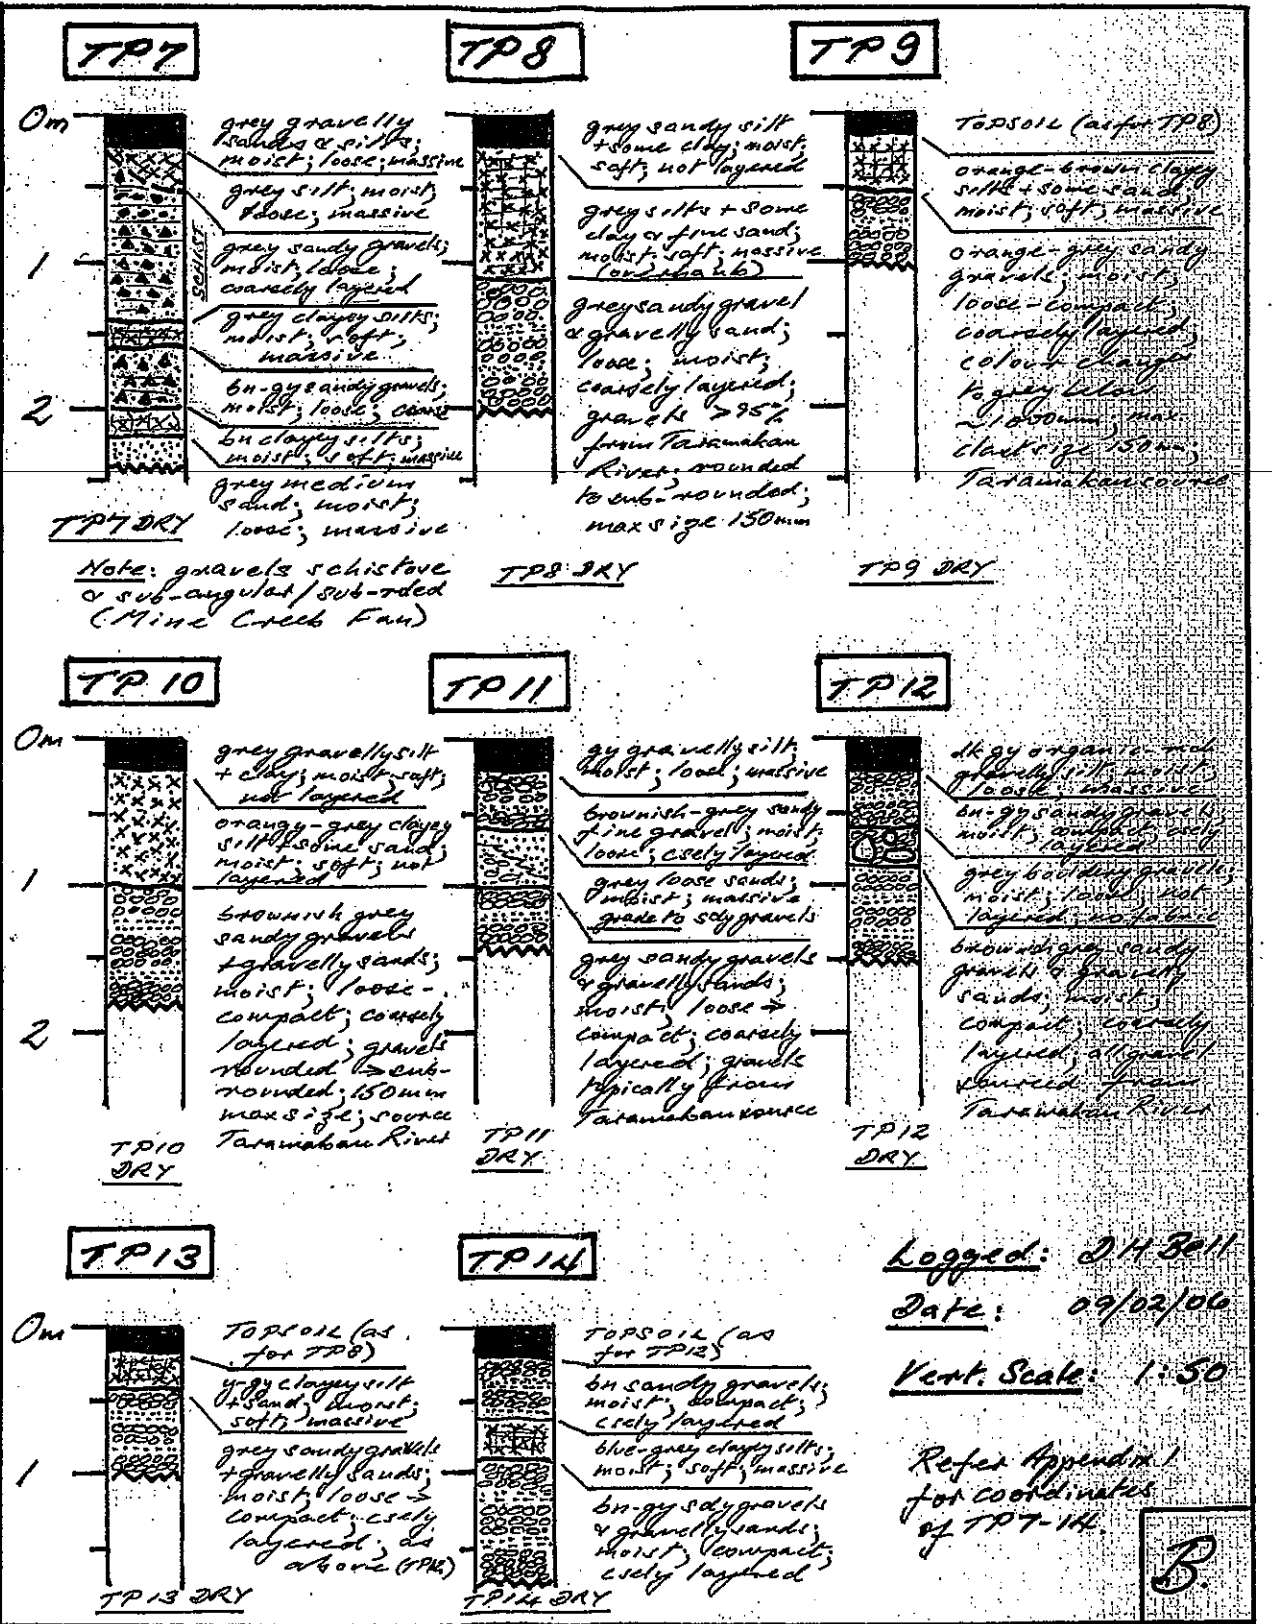 TP7
0m
1
2
grey gravelly
sands & silts;
moist; loose; massive
grey silt; moist;
loose; massive
grey sandy gravels;
moist; loose;
coarsely layered
SCHIST
grey clayey silts;
moist; soft;
massive
bn-gy sandy gravels;
moist; loose; coarse
bn clayey silts;
moist; soft; massive
grey medium
sand; moist;
loose; massive
TP7 DRY
Note: gravels schistose
& sub-angular/sub-rded
(Mine Creek Fan)
TP8
grey sandy silt
+ some clay; moist;
soft; not layered
grey silts + some
clay & fine sand;
moist; soft; massive
(overbank)
grey sandy gravel
& gravelly sand;
loose; moist;
coarsely layered;
gravels >95%
from Taramakau
River; rounded
to sub-rounded;
max size 150mm
TP8 DRY
TP9
TOPSOIL (as for TP8)
orange-brown clayey
silts + some sand
moist; soft; massive
orange-grey sandy
gravels; moist;
loose-compact;
coarsely layered;
colour changes
to grey below
~1000mm; max
clast size 150mm;
Taramakau source
TP9 DRY
TP10
0m
1
2
grey gravelly silt
+ clay; moist; soft;
not layered
orangy-grey clayey
silt + some sand;
moist; soft; not
layered
brownish grey
sandy gravels
+ gravelly sands;
moist; loose-
compact; coarsely
layered; gravels
rounded → sub-
rounded; 150mm
max size; source
Taramakau River
TP10
DRY
TP11
gy gravelly silt;
moist; loose; massive
brownish-grey sandy
fine gravel; moist;
loose; csely layered
grey loose sands;
moist; massive
grade to sdy gravels
grey sandy gravels
& gravelly sands;
moist; loose →
compact; coarsely
layered; gravels
typically from
Taramakau source
TP11
DRY
TP12
dk gy organic-rich
gravelly silt; moist;
loose; massive
bn-gy sandy gravels;
moist; compact; csely
layered
grey bouldery gravels;
moist; loose; not
layered; no fabric
brownish grey sandy
gravels & gravelly
sands; moist;
compact; coarsely
layered; all gravel
sourced from
Taramakau River
TP12
DRY
TP13
0m
1
TOPSOIL (as
for TP8)
y-gy clayey silt
+ sand; moist;
soft; massive
grey sandy gravels
+ gravelly sands;
moist; loose →
compact; csely
layered; as
above (TP12)
TP13 DRY
TP14
TOPSOIL (as
for TP12)
bn sandy gravels;
moist; compact;
csely layered
blue-grey clayey silts;
moist; soft; massive
bn-gy sdy gravels
& gravelly sands;
moist; compact;
csely layered
TP14 DRY
Logged: D H Bell
Date: 09/02/06
Vert. Scale: 1:50
Refer Appendix 1
for coordinates
of TP7-14.
B.